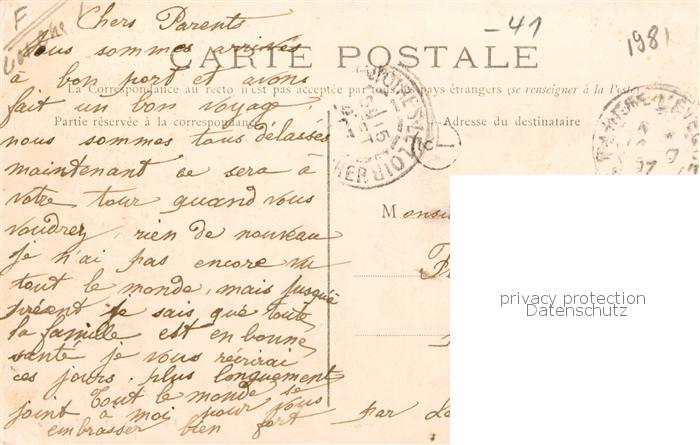 F
-41
1981
Chers Parents
Nous sommes arrivés
CARTE POSTALE
à bon port et avons
La Correspondance au recto n'est pas acceptée par tous les pays étrangers (se renseigner à la Poste
fait un bon voyage
Partie réservée à la correspondance
Adresse du destinataire
nous sommes tous délassés
maintenant ce sera à
votre tour quand vous
voudrez, rien de nouveau
je n'ai pas encore vu
tout le monde, mais jusqu'à
présent je sais que toute
la famille est en bonne
santé je vous réécrirai
ces jours plus longuement
Tout le monde se
joint à moi pour vous
embrasser bien fort
Monsi
par La
privacy protection
Datenschutz